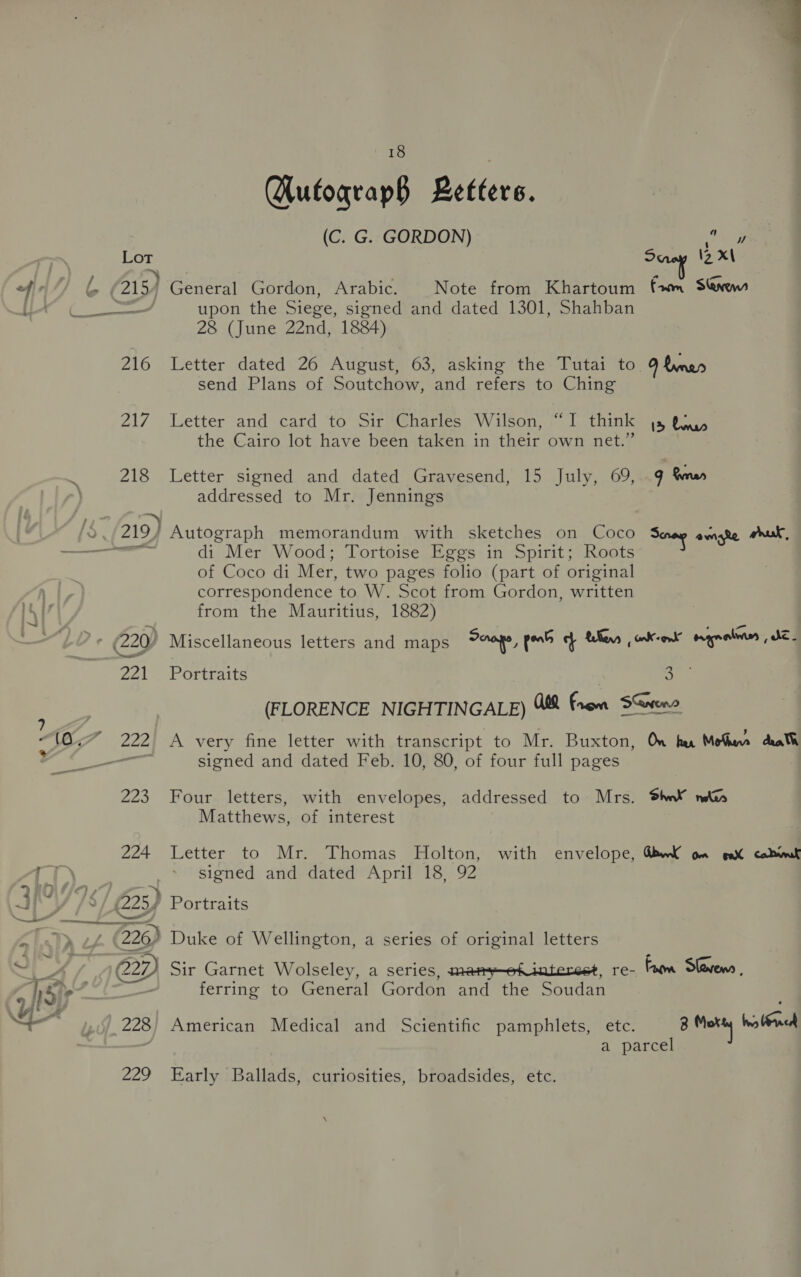 18
Autograph Letters.
(C. G. GORDON)
Lot
Scrap 12" x 11"
215 General Gordon, Arabic. Note from Khartoum from Stevens
upon the Siege, signed and dated 1301, Shahban
28 (June 22nd, 1884)
216 Letter dated 26 August, 63, asking the Tutai to 9 lines
send Plans of Soutchow, and refers to Ching
217 Letter and card to Sir Charles Wilson, “I think 13 lines
the Cairo lot have been taken in their own net.”
218 Letter signed and dated Gravesend, 15 July, 69, 9 lines
addressed to Mr. Jennings
219 Autograph memorandum with sketches on Coco Scrap single sheet,
di Mer Wood; Tortoise Eggs in Spirit; Roots
of Coco di Mer, two pages folio (part of original
correspondence to W. Scot from Gordon, written
from the Mauritius, 1882)
220 Miscellaneous letters and maps Scraps, parts of letters, cut-out signatures, &c.
221 Portraits 3
(FLORENCE NIGHTINGALE) All from Stevens
222 A very fine letter with transcript to Mr. Buxton, On her Mothers death
signed and dated Feb. 10, 80, of four full pages
223 Four letters, with envelopes, addressed to Mrs. Short notes
Matthews, of interest
224 Letter to Mr. Thomas Holton, with envelope, about an oak cabinet
signed and dated April 18, 92
225 Portraits
226 Duke of Wellington, a series of original letters
227 Sir Garnet Wolseley, a series, many of interest, re- from Stevens,
ferring to General Gordon and the Soudan
228 American Medical and Scientific pamphlets, etc. 3
a parcel
229 Early Ballads, curiosities, broadsides, etc.